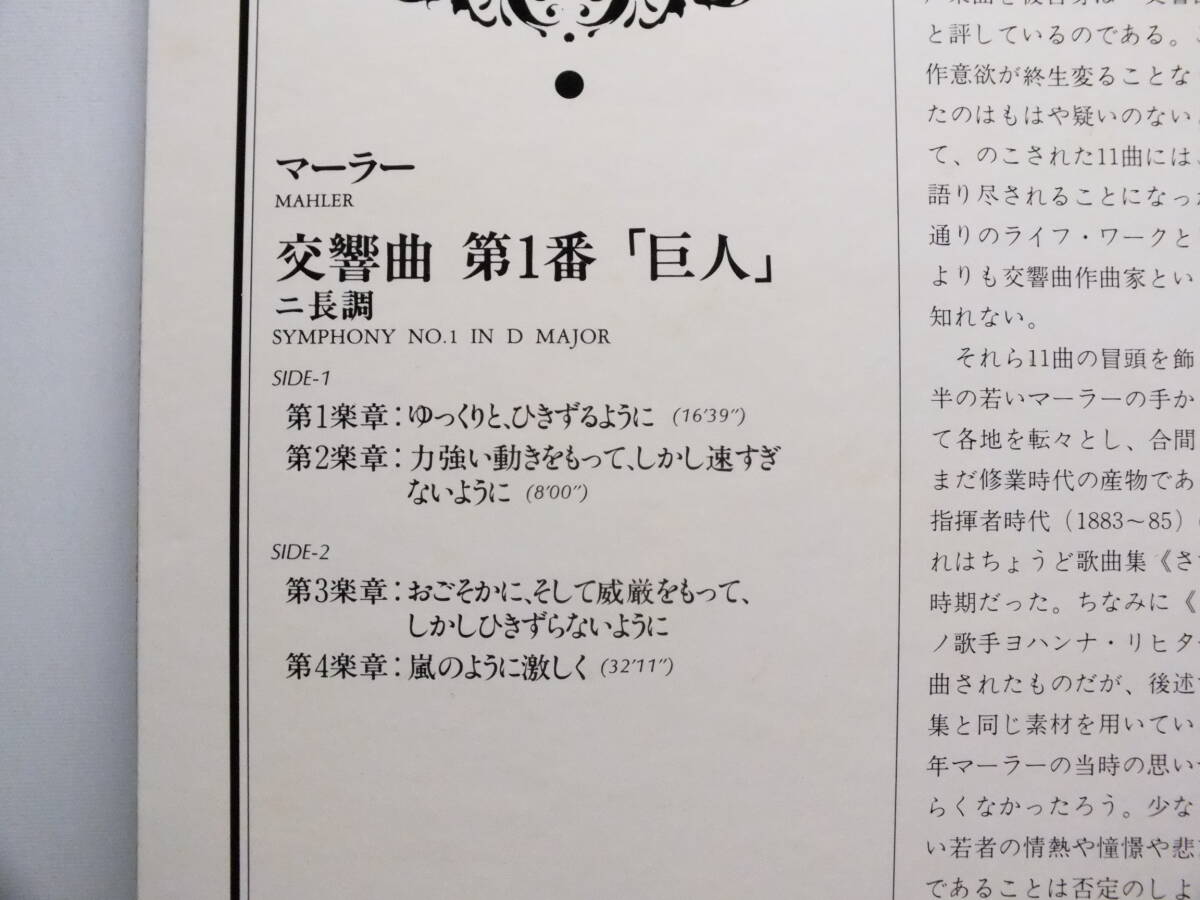 マーラー
MAHLER
交響曲 第1番「巨人」
ニ長調
SYMPHONY NO.1 IN D MAJOR
SIDE-1
第1楽章：ゆっくりと、ひきずるように (16'39")
第2楽章：力強い動きをもって、しかし速すぎ
ないように (8'00")
SIDE-2
第3楽章：おごそかに、そして威厳をもって、
しかしひきずらないように
第4楽章：嵐のように激しく (32'11")
と評しているのである。
作意欲が終生変ることな
たのはもはや疑いのない
て、のこされた11曲には
語り尽されることになっ
通りのライフ・ワークと
よりも交響曲作曲家とい
知れない。
それら11曲の冒頭を飾
半の若いマーラーの手か
て各地を転々とし、合間
まだ修業時代の産物であ
指揮者時代（1883〜85）
れはちょうど歌曲集《さ
時期だった。ちなみに《
ノ歌手ヨハンナ・リヒタ
曲されたものだが、後述
集と同じ素材を用いてい
年マーラーの当時の思い
らくなかったろう。少な
い若者の情熱や憧憬や悲
であることは否定のしよ